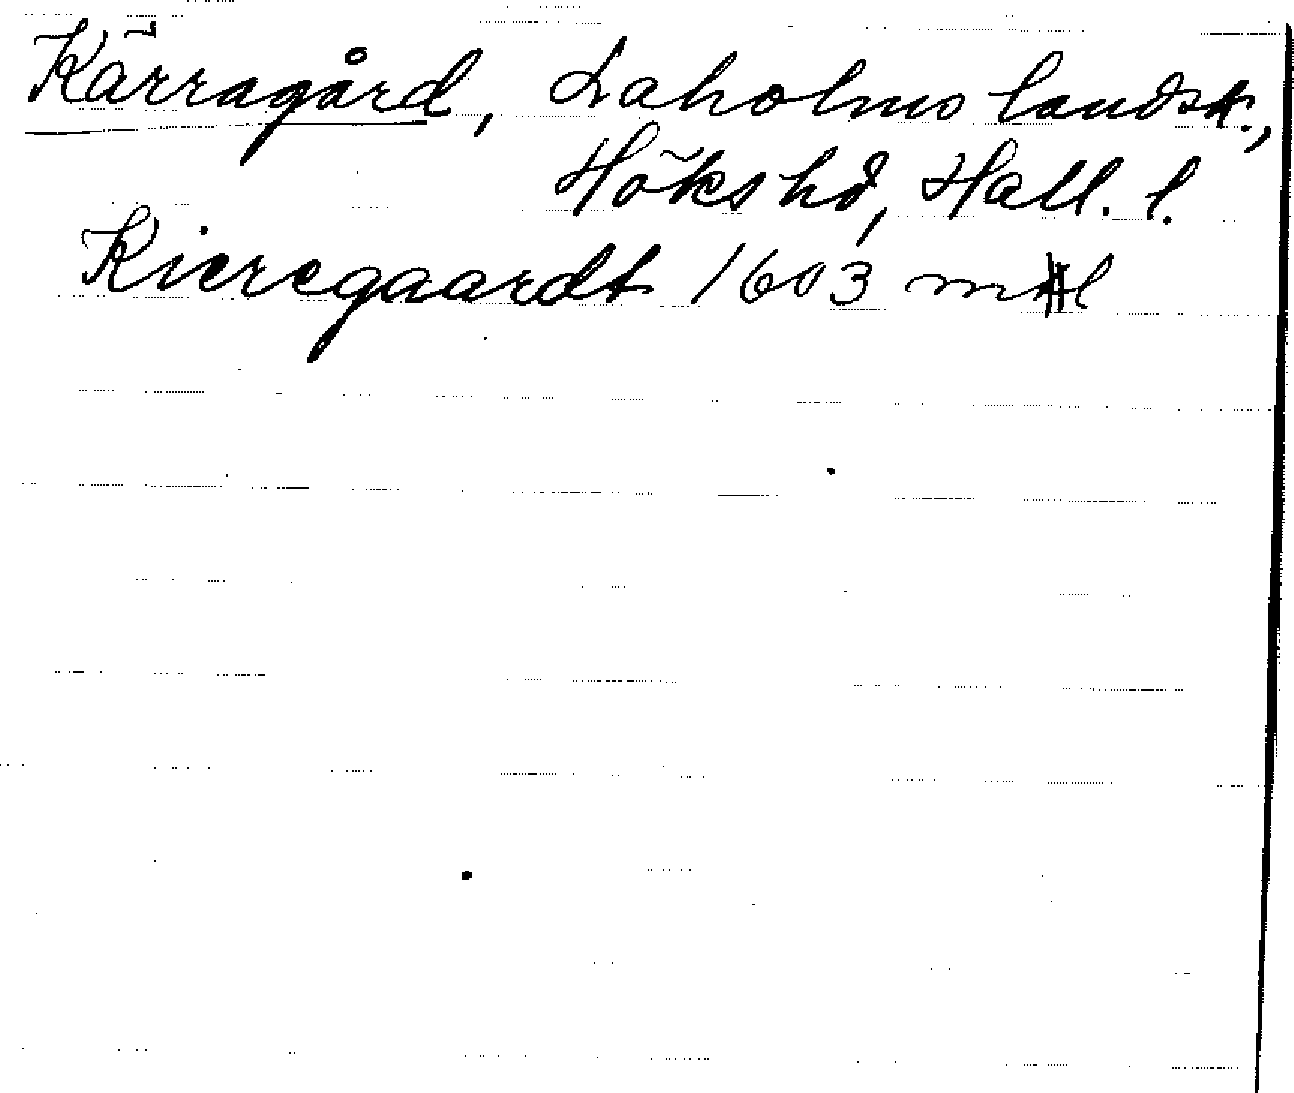 Kärragård, Laholms landsk.,
Höks hd, Hall. l.
Kieregaardt 1603